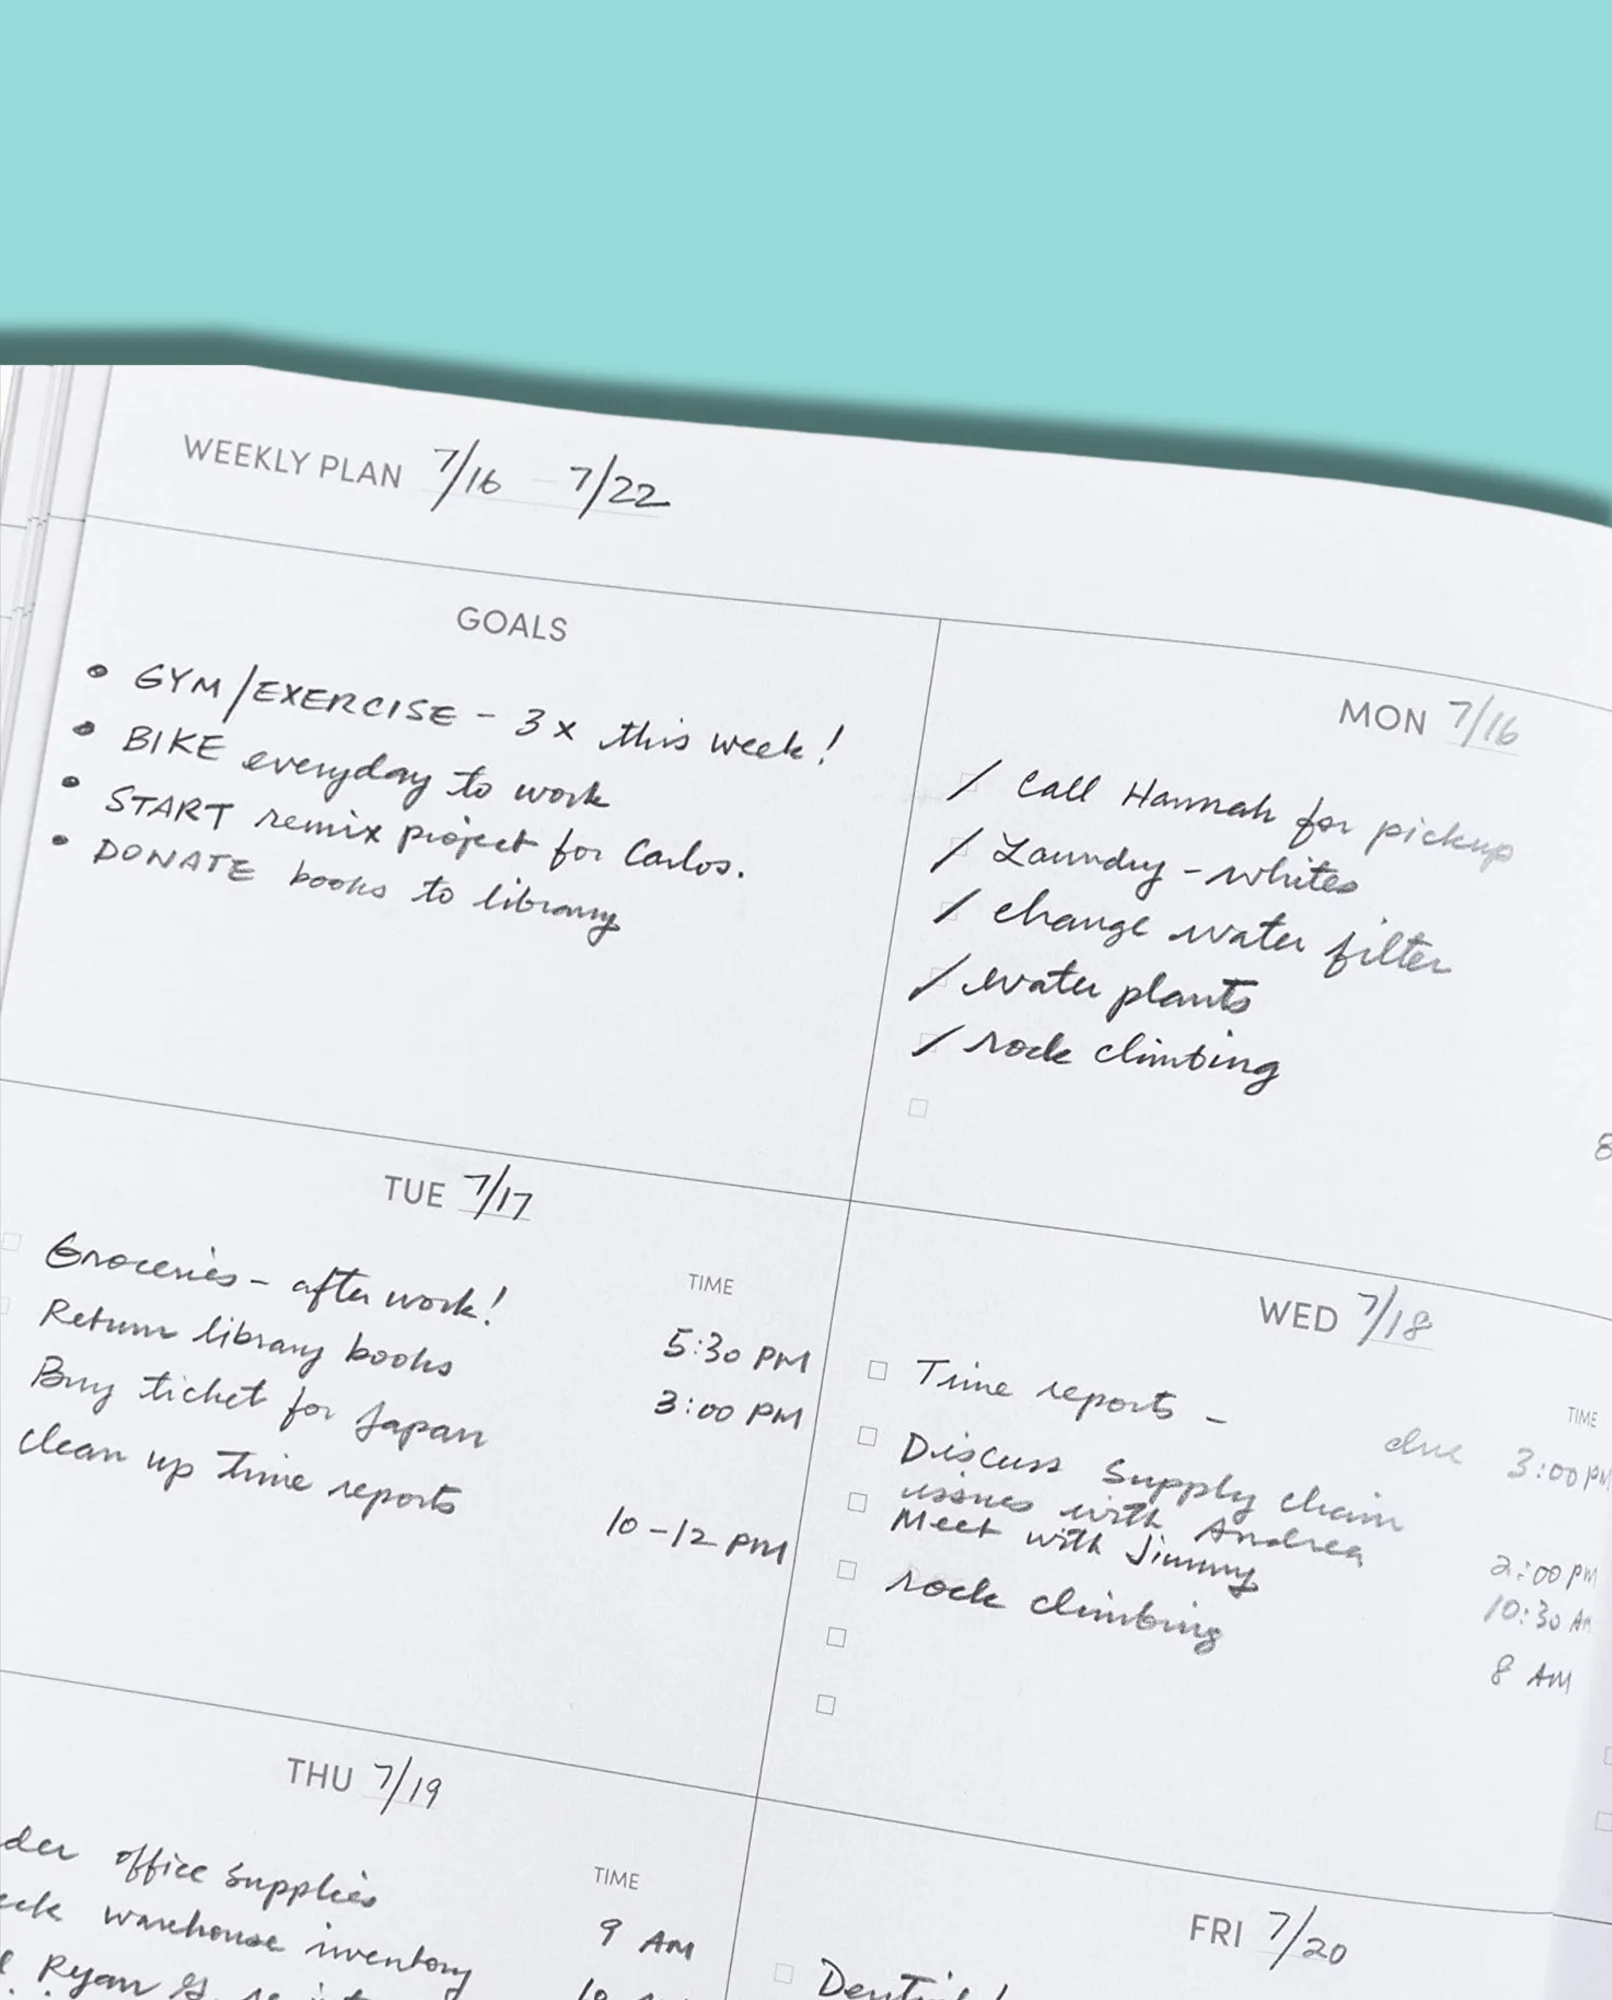 WEEKLY PLAN 7/16 – 7/22
GOALS
• GYM/EXERCISE – 3x this week!
• BIKE everyday to work
• START remix project for Carlos.
• DONATE books to library
MON 7/16
Call Hannah for pickup
Laundry – whites
change water filter
water plants
rock climbing
8
TUE 7/17
TIME
Groceries – after work!
5:30 PM
Return library books
3:00 PM
Buy ticket for Japan
clean up time reports
10–12 PM
WED 7/18
TIME
Time reports –
due 3:00 PM
Discuss Supply chain
issues with Andrea
2:00 PM
Meet with Jimmy
10:30 AM
rock climbing
8 AM
THU 7/19
TIME
der office supplies
9 AM
eck warehouse inventory
10
Ryan G. re
FRI 7/20